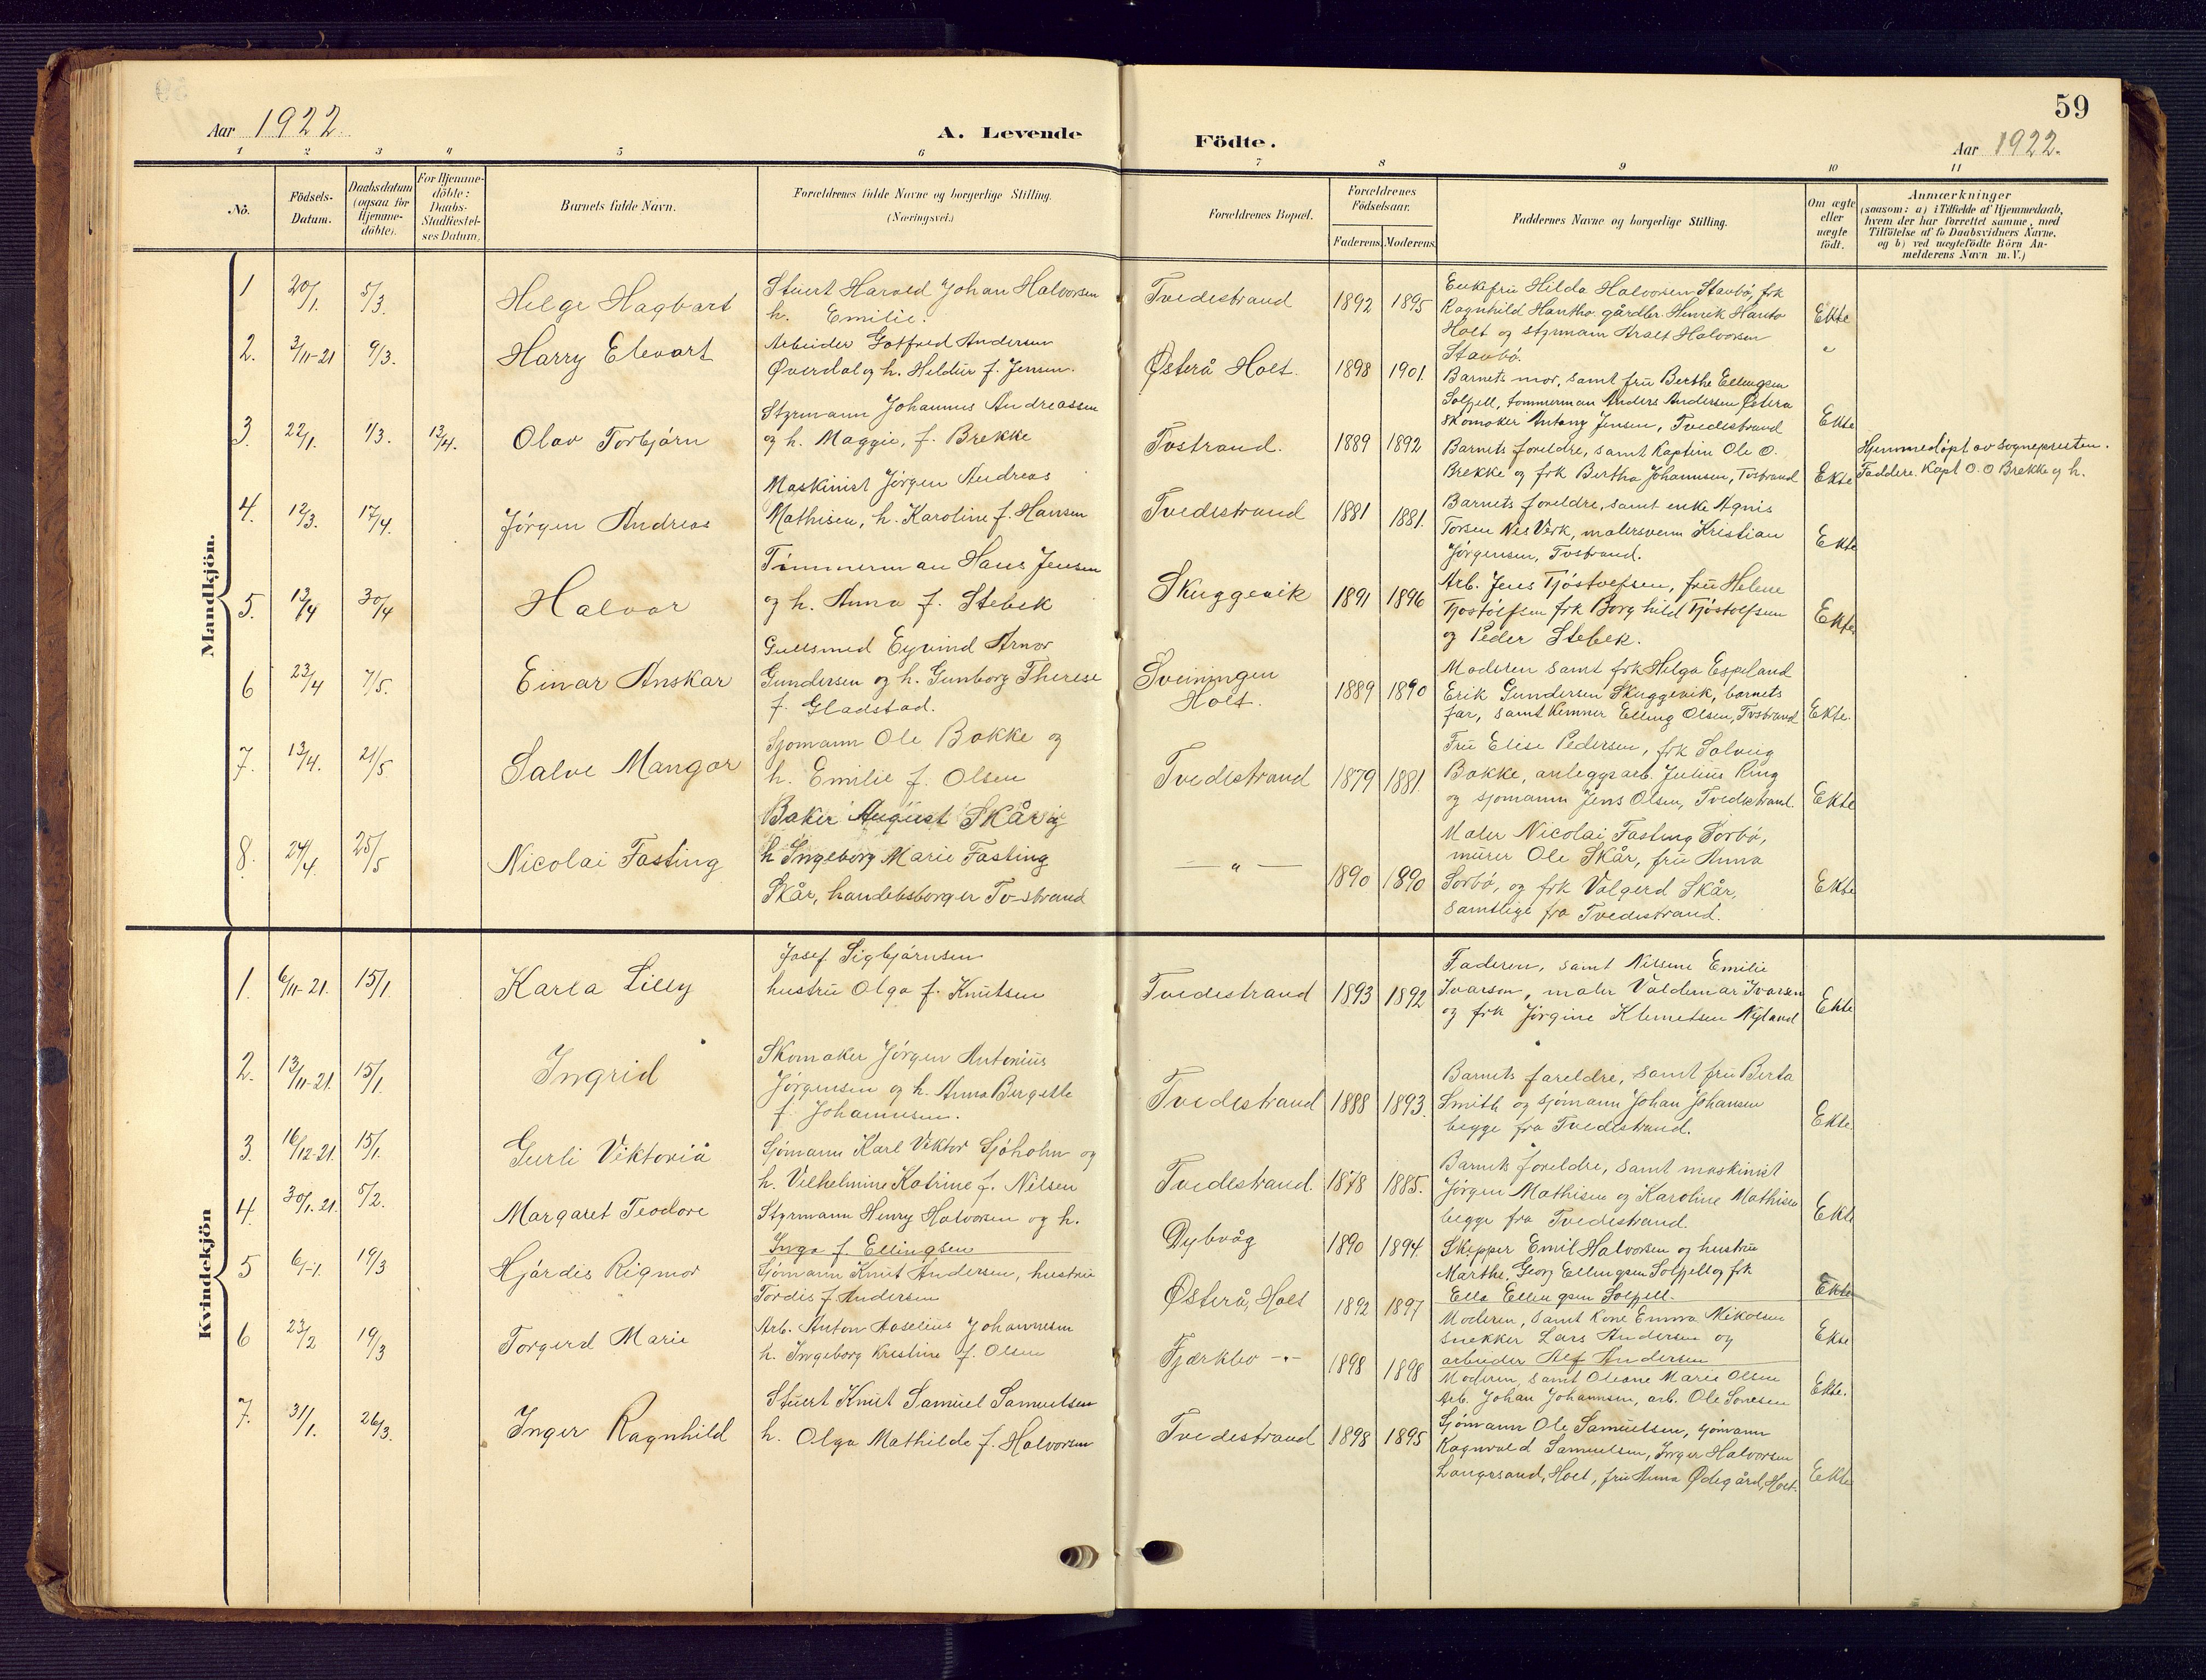 59
Aar 1922.
A. Levende
Födte.
Aar 1922.
1 2 3 4 5 6 7 8 9 10 11
No.
Födsels-
Datum.
Daabsdatum
(ogsaa for
Hjemme-
döbte).
For Hjemme-
döbte:
Daabs-
Stadfæstel-
ses Datum.
Barnets fulde Navn.
Forældrenes fulde Navne og borgerlige Stilling.
(Næringsvei.)
Forældrenes Bopæl.
Forældrenes
Födselsaar.
Faderens. Moderens.
Faddernes Navne og borgerlige Stilling.
Om ægte
eller
uægte
födt.
Anmærkninger
(saasom: a) i Tilfælde af Hjemmedaab,
hvem der har forrettet samme, med
Tilföielse af to Daabsvidners Navne,
og b) ved uægtefödte Börn An-
melderens Navn m. V.)
Mandkjön.
1 20/1. 5/3. Helge Hagbart
Stuert Harald Johan Halvorsen
h. Emilie.
Tvedestrand 1892 1895
Enkefru Hilda Halvorsen Stavbö, frk
Ragnhild Hantho. gårdbr. Henrik Hanto
Holt og styrmann Aralt Halvorsen
Stavbö.
Ekte
2. 3/11-21 9/3. Harry Elevart
Arbeider Gotfred Andersen
Øverdal og h. Heldur f. Jensen.
Østerå Holt. 1898 1901.
Barnets mor, samt fru Berthe Ellingsen
Solfjell, tømmerman Anders Andersen Østera
Skomaker Antang Jensen, Tvedestrand
"
Ekte
3. 22/1. 1/3. 13/4. Olav Torbjörn
Styrmann Johannes Andreassen
og h. Maggie, f. Brekke
Tvstrand. 1889 1892
Barnets foreldre, samt Kaptein Ole O.
Brekke og frk Bertha Johannsen, Tvstrand
Ekte
Hjemmedöpt av sognepresten.
Faddere. Kapt O. O Brekke og h.
4. 12/3. 17/4. Jörgen Andreas
Maskinist Jörgen Andreas
Mathisen, h. Karoline f. Hansen
Tvedestrand 1881 1881.
Barnets foreldre, samt enke Agnis
Torsen Nes Verk, malersvenn Kristian
Jörgensen, Tvstrand.
Ekte
5. 13/4 30/4 Halvor
Tömmerman Hans Jensen
og h. Anna f. Stebek
Skuggevik 1891 1896
Arb. Jens Tjöstolfsen, fru Helene
Tjostölfsen frk Borghild Tjöstolfsen
og Peder Stebek.
Ekte
6 23/4 7/5. Einar Anskar
Gullsmed Eyvind Arnor
Gundersen og h. Gunborg Therese
f. Gladstad.
Sveiningen
Holt. 1889 1890
Moderen samt frk Helga Espeland
Erik Gundersen Skuggevik, barnets
far, samt Kemner Elling Olsen, Tvstrand
Ekte.
7. 13/4. 21/5 Salve Mangor
Sjömann Ole Bakke og
h. Emilie f. Olsen
Tvedestrand 1879 1881.
Fru Elise Pedersen, frk Solveig
Bakke, anleggsarb. Julius Ring
og sjomann Jens Olsen, Tvedestrand.
Ekte
8. 24/4. 25/5 Nicolai Fasting
Baker August Skår og
h Ingeborg Marie Fasting
Skår, handelsborger Tv-strand
— " — 1890 1890
Maler Nicolai Fasting Sorbö,
murer Ole Skår, fru Anna
Sorbö, og frk Valgerd Skår,
samtlige fra Tvedestrand.
Ekte
Kvindekjön
1. 6/11-21. 15/1 Karla Lilly
Josef Sigbjörnsen
hustru Olga f. Knutsen
Tvedestrand 1893 1892
Faderen, samt Nilsine Emilie
Ivarsen, maler Valdemar Ivarsen
og frk Jörgine Klemetsen Nyland
Ekte
2. 13/11-21. 15/1. Ingrid
Skomaker Jörgen Antonius
Jörgensen og h. Anna Bergitte
f. Johannesen.
Tvedestrand 1888 1893.
Barnets foreldre, samt fru Berta
Smith og sjömann Johan Johansen
begge fra Tvedestrand.
Ekte.
3. 16/12-21. 15/1. Gurli Viktoria
Sjömann Karl Viktor Sjöholm og
h. Vilhelmine Katrine f. Nilsen
Tvedestrand. 1878 1885.
Barnets foreldre, samt maskinist
Jörgen Mathisen og Karoline Mathisen
begge fra Tvedestrand.
Ekte
4. 30/1.21. 5/2. Margaret Teodore
Styrmann Henry Halvorsen og h.
Inga f. Ellingsen
Dybvåg 1890 1894.
Skipper Emil Halvorsen og hustru
Marthe. Georg Ellingsen Solfjell og frk
Ella Ellingsen Solfjell.
Ekte
5 6/-1. 19/3 Hjördis Rigmor
Sjömann Knut Andersen, hustru
Tordis f. Andersen
Østerå, Holt 1892 1897
Moderen, samt Kone Emma Nikolsen
snekker Lars Andersen og
arbeider Alf Andersen
Ekte
6 23/2 19/3 Torgerd Marie
Arb. Anton Aselius Johannesen
h. Ingeborg Kristine f. Olsen
Fjærkleo -"- 1898 1898
Moderen, samt Oleane Marie Olsen
Arb. Johan Johannsen, arb. Ole Sonesen
Ekte.
7. 31/1. 26/3. Inger Ragnhild
Stuert Knut Samuel Samuelsen
h. Olga Mathilde f. Halvorsen
Tvedestrand 1898 1895
Sjömann Ole Samuelsen, sjömann
Ragnvald Samuelsen, Inger Halvorsen
Langesand, Holt, fru Anna Ødegård, Holt.
Ekte